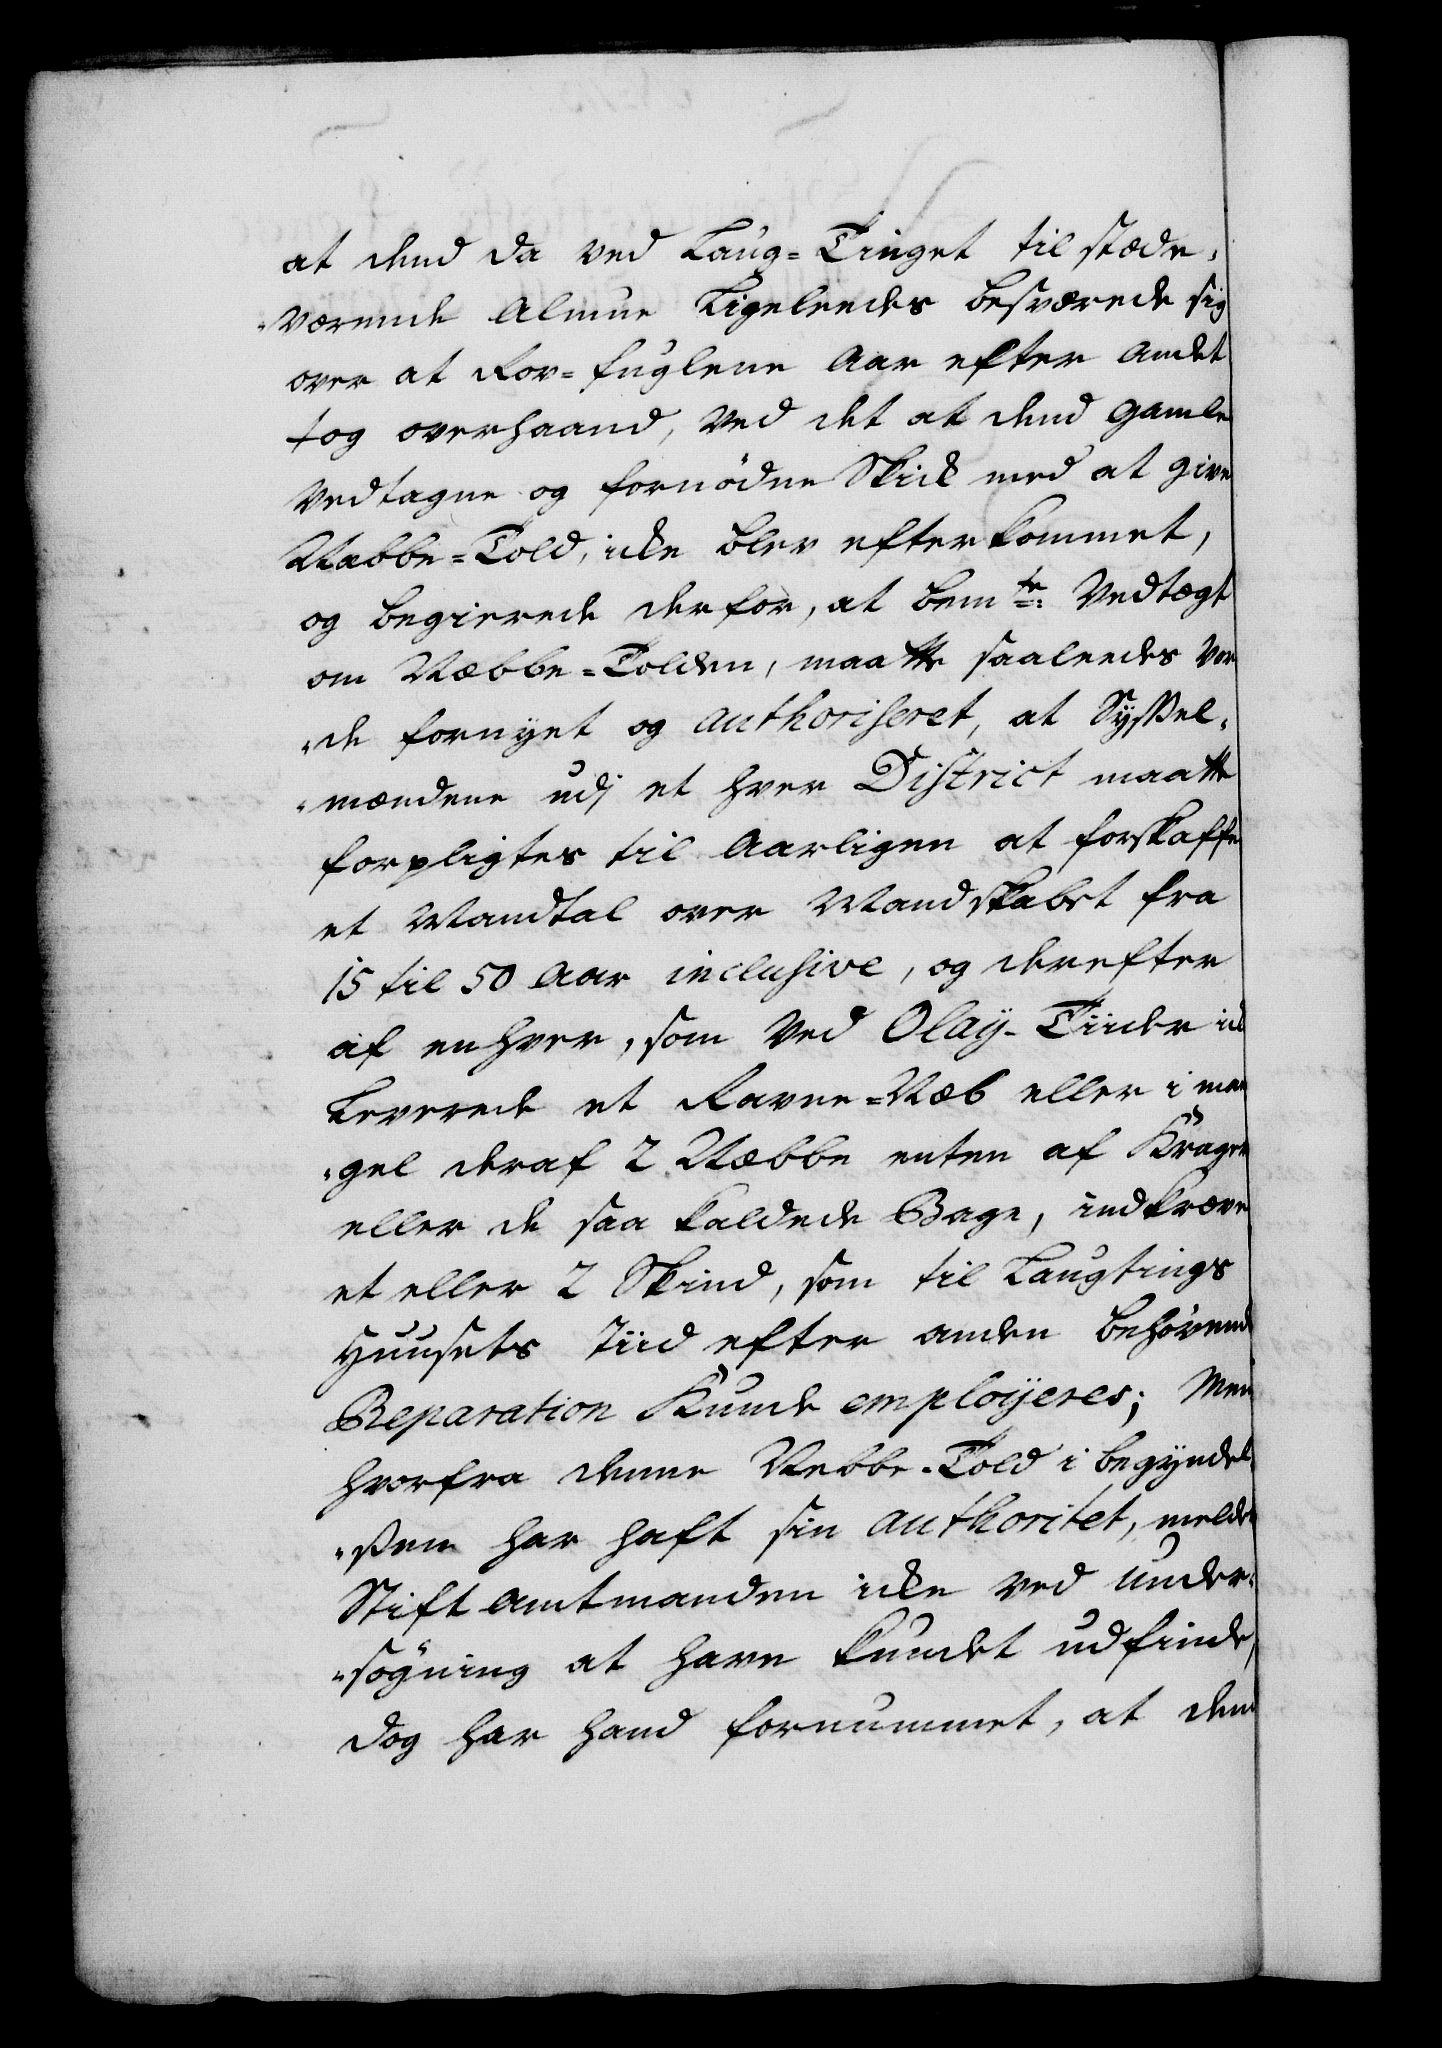 at dend da ved Laug=Tinget tilstæde,
"værende Almue Ligeleedes besværede sig
over at Rov=fuglene Aar efter andet
tog overhaand, ved det at dend gamle
vedtagne og fornødne Skik med at give
Næbbe=Told, icke blev efterkommet,
og begierede derfor, at bem.te: Vedtægt
om Næbbe=Tolden, maatte saaleedes vor
"de fornyet og authoriseret, at Syssel,
"mændene udj et hver District maatte
forpligtes til Aarligen at forskaffe
et Mandtal over Mandskabet fra
15 til 50 Aar inclusive, og derefter
af enhver, som ved Olaÿ-Tiider ick
Leverede et Ravne=Næb eller i man
"gel deraf 2 Næbbe enten af Krager
eller de saa kaldede Bage, indkræve
et eller 2 Skind, som til Laugtings
Huusets Tiid efter anden behøvend
Reparation Kunde emploÿeres; Men
hvorfra denne Nebbe-Told i begÿndel,
"sen har haft sin authoritet, melder
Stiftamtmanden icke ved under,
"søgning at have kundet udfinde,
dog har hand fornummet, at dend